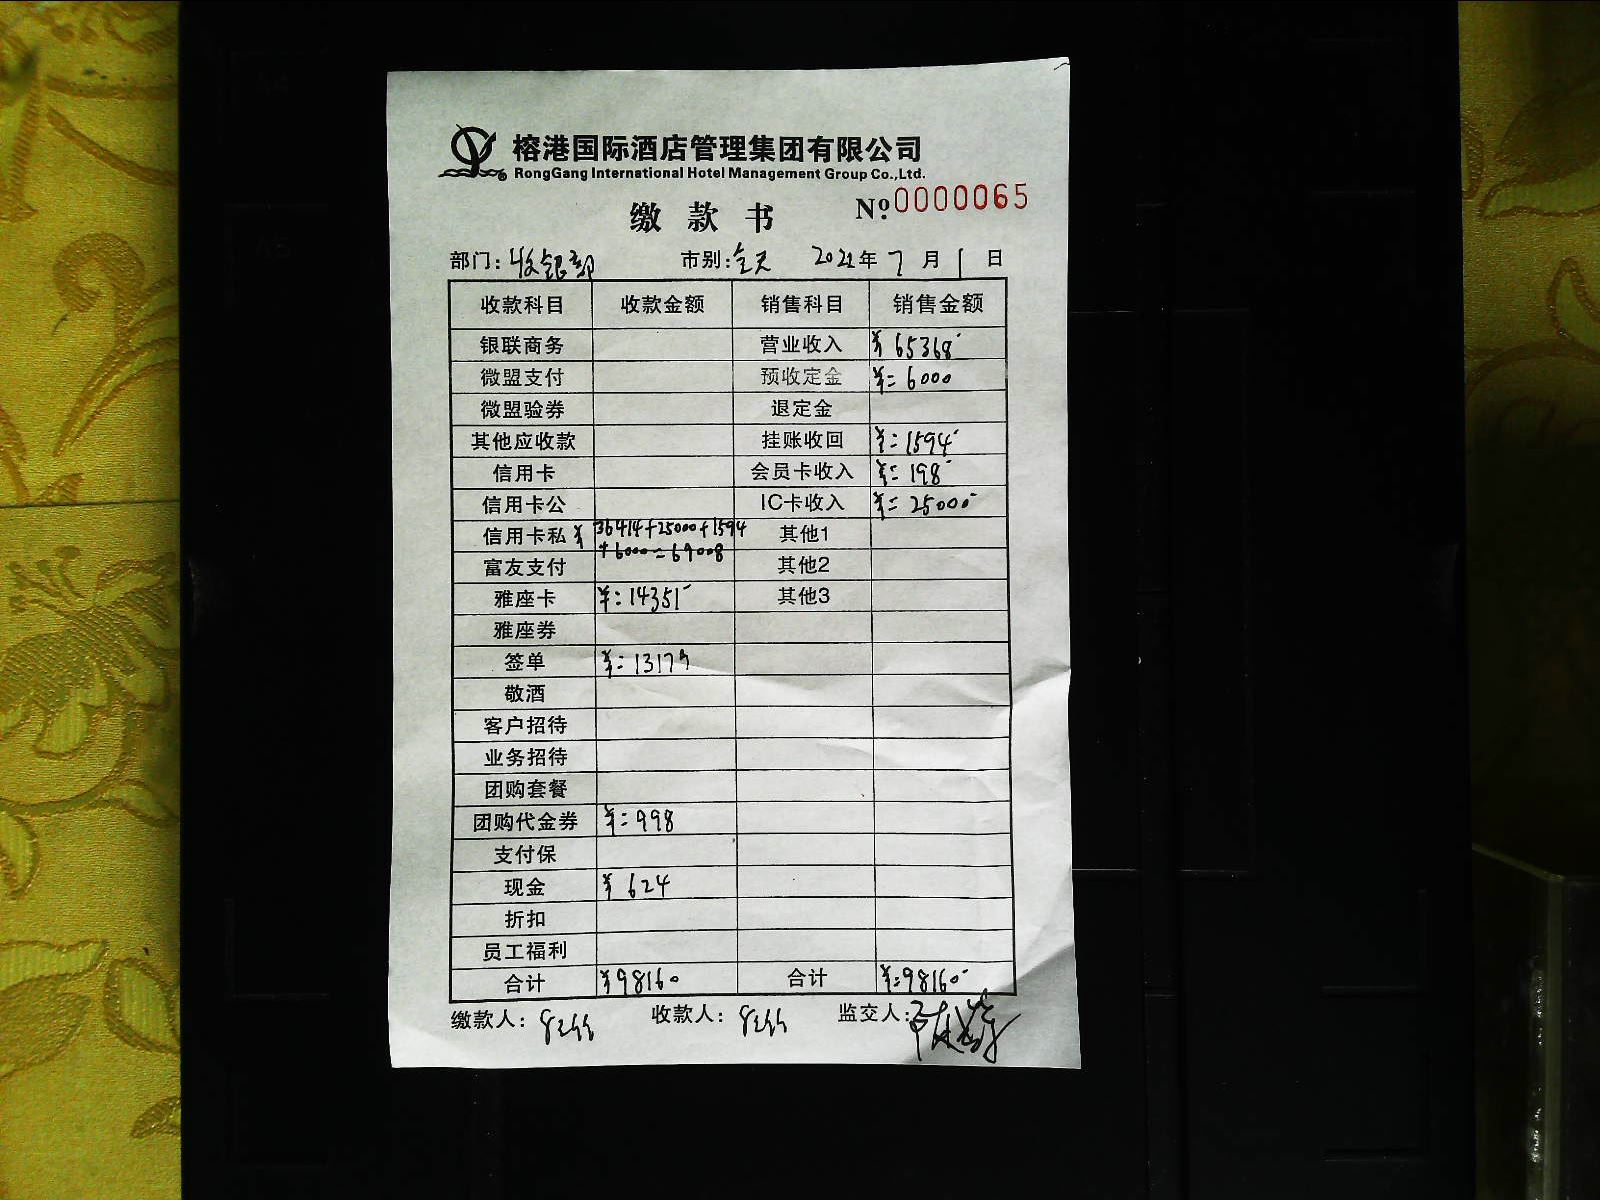 榕港国际酒店管理集团有限公司
RongGang International Hotel Management Group Co.,Ltd.
缴款书 Nº:0000065
部门:收银部 市别:全天 2021年7月1日
收款科目 收款金额 销售科目 销售金额
银联商务 营业收入 ¥65368
微盟支付 预收定金 ¥=6000
微盟验券 退定金
其他应收款 挂账收回 ¥:1594
信用卡 会员卡收入 ¥=198
信用卡公 IC卡收入 ¥=25000
信用卡私 ¥36414+25000+1594 其他1
+6000=69008
富友支付 其他2
雅座卡 ¥:14351 其他3
雅座券
签单 ¥:13179
敬酒
客户招待
业务招待
团购套餐
团购代金券 ¥:998
支付保
现金 ¥624
折扣
员工福利
合计 ¥98160 合计 ¥:98160
缴款人: 收款人: 监交人: